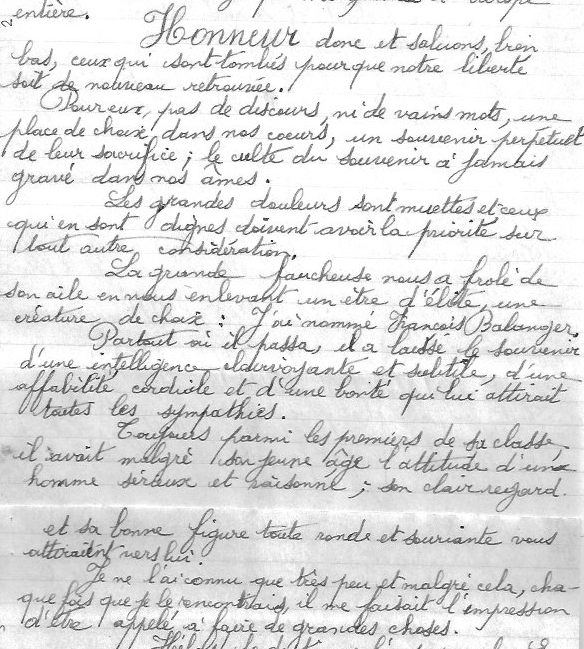 entière.
Honneur donc et saluons, bien
bas, ceux qui sont tombés pour que notre liberté
soit de nouveau retrouvée.
Pour eux, pas de discours, ni de vains mots, une
place de choix, dans nos coeurs, un souvenir perpétuel
de leur sacrifice ; le culte du souvenir à jamais
gravé dans nos âmes.
Les grandes douleurs sont muettes et ceux
qui en sont dignes doivent avoir la priorité sur
tout autre considération.
La grande faucheuse nous a frolé de
son aile en nous enlevant un être d'élite, une
créature de choix : J'ai nommé François Balanger,
Partout où il passa, il a laissé le souvenir
d'une intelligence clairvoyante et subtile, d'une
affabilité cordiale et d'une bonté qui lui attirait
toutes les sympathies.
Toujours parmi les premiers de sa classe
il avait malgré son jeune âge l'attitude d'un
homme sérieux et raisonné ; son clair regard.
et sa bonne figure toute ronde et souriante vous
attiraient vers lui.
Je ne l'ai connu que très peu et malgré cela, cha-
que fois que je le rencontrais, il me faisait l'impression
d'être appelé à faire de grandes choses.